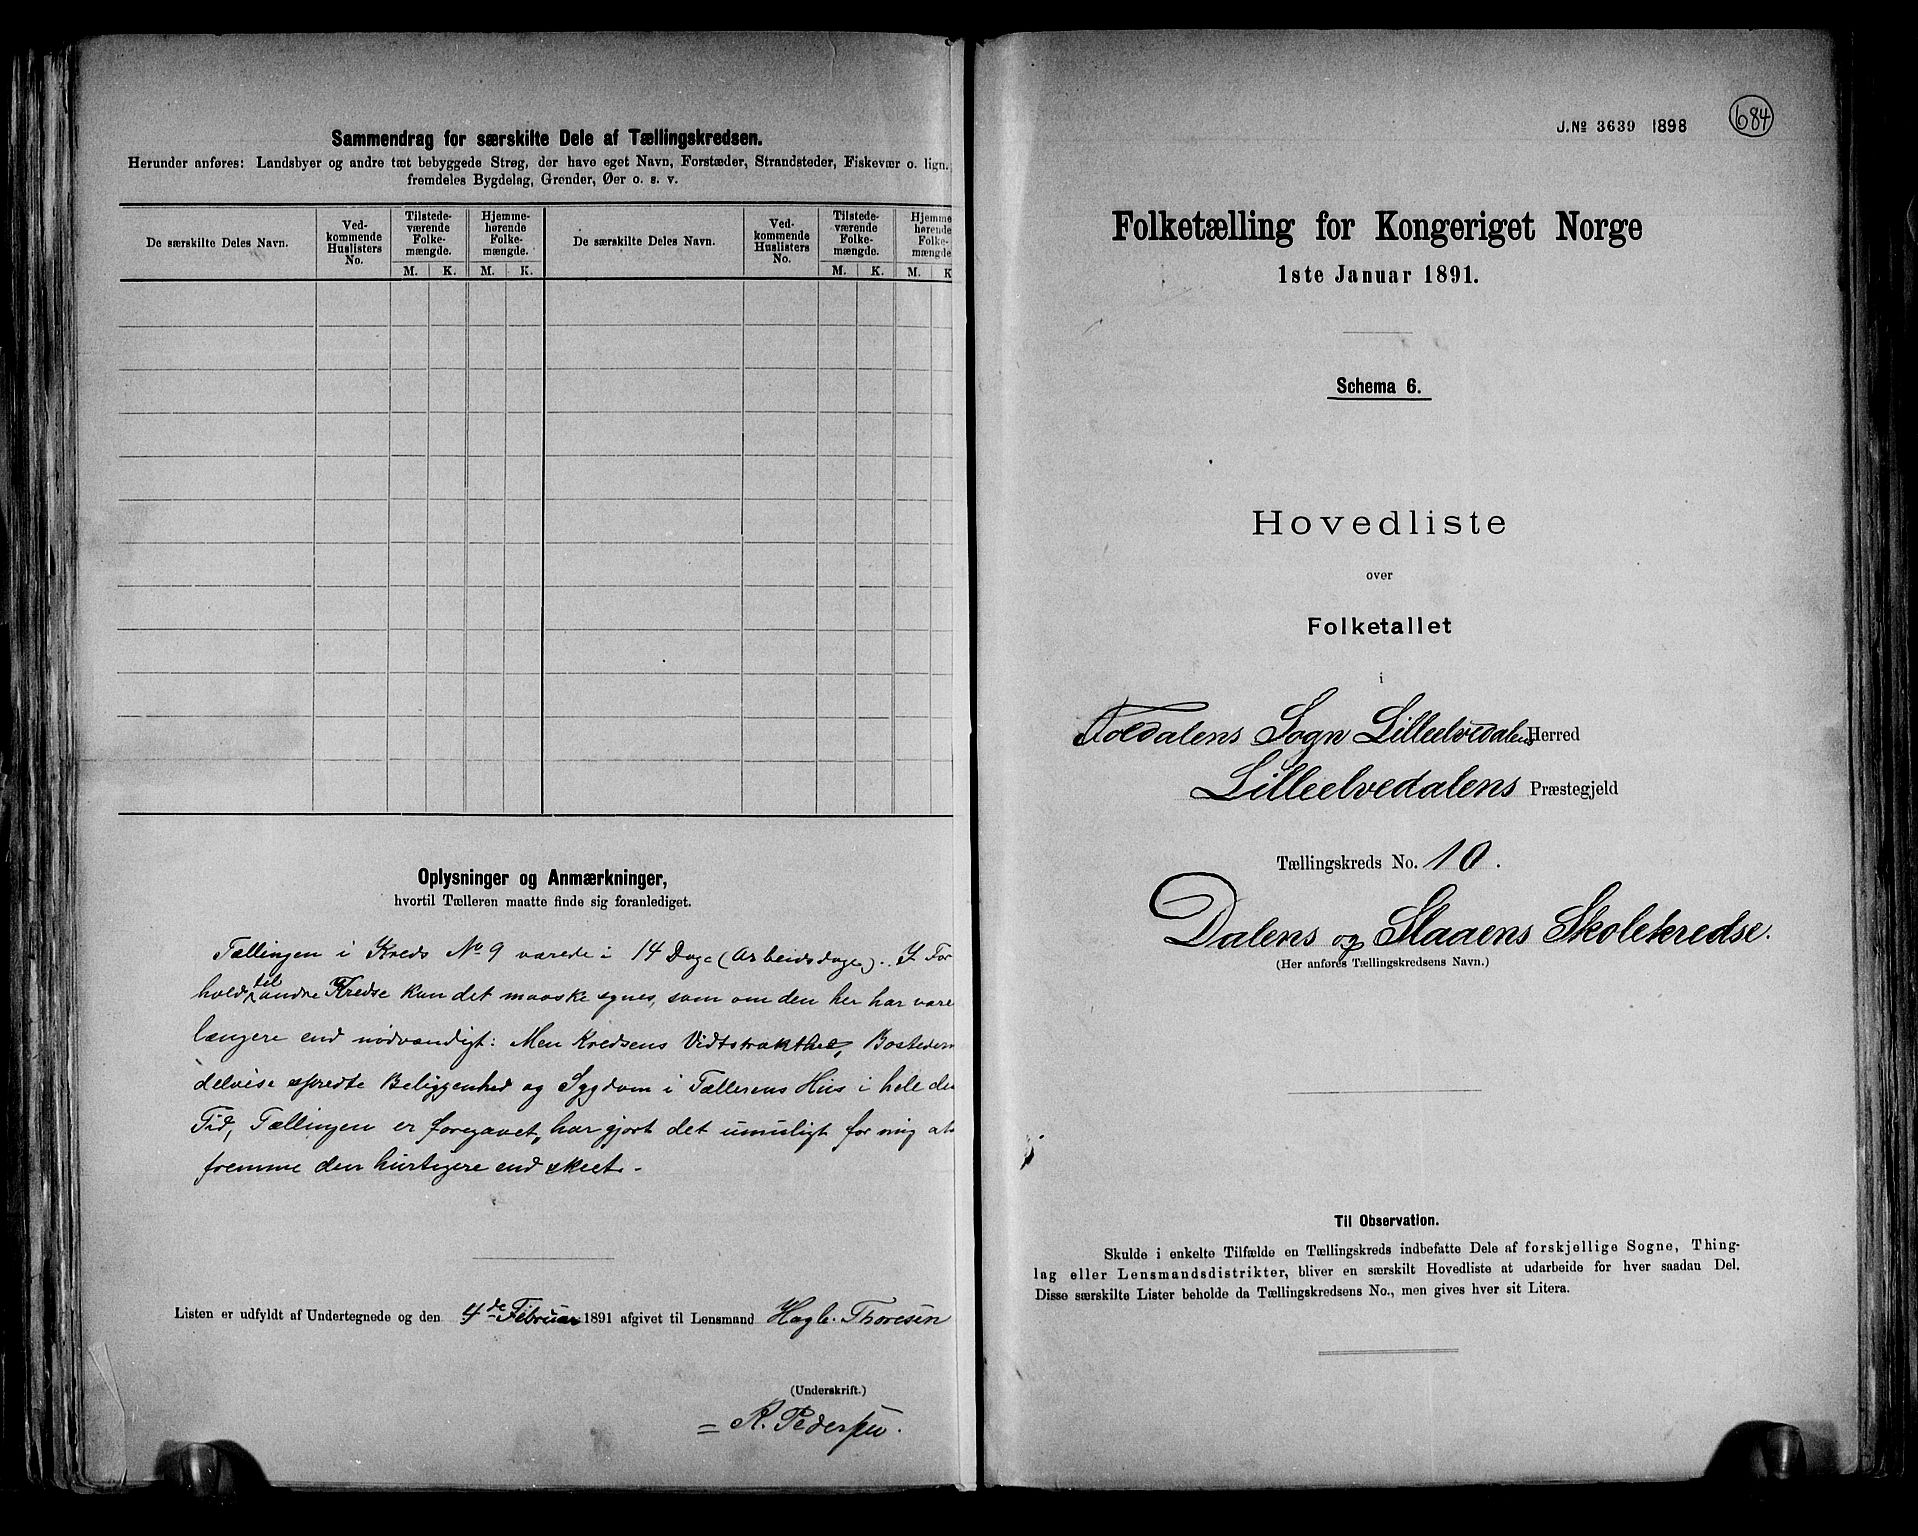 Sammendrag for særskilte Dele af Tællingskredsen.
Herunder anføres: Landsbyer og andre tæt bebyggede Strøg, der have eget Navn, Forstæder, Strandsteder, Fiskevær o. lign.
fremdeles Bygdelag, Grender, Øer o. s. v.
De særskilte Deles Navn.
Ved-
kommende
Huslisters
No.
Tilstede-
værende
Folke-
mængde.
Hjemme-
hørende
Folke-
mængde.
De særskilte Deles Navn.
Ved-
kommende
Huslisters
No.
Tilstede-
værende
Folke-
mængde.
Hjemme
hørende
Folke-
mængde
M. K. M. K. M. K. M. K
Oplysninger og Anmærkninger,
hvortil Tælleren maatte finde sig foranlediget.
Tællingen i Kreds No 9 varede i 14 Dage (Arbeidsdage). I For
hold til andre Kredse kan det maaske synes, som om den her har vare
længere end nødvændigt: Men Kredsens Vidtstrakthed, Bostedern
delvise spredte Beliggenhed og Sygdom i Tællerens Hus i hele de
Tid, Tællingen er foregaaet, har gjort det umuligt for mig at
fremme den hurtigere end skeet.
Listen er udfyldt af Undertegnede og den 4de Februar 1891 afgivet til Lensmand Hagb. Thoresen
(Underskrift.)
R. Pedersen.
J. No 3639 1898
684
Folketælling for Kongeriget Norge
1ste Januar 1891.
Schema 6.
Hovedliste
over
Folketallet
i
Foldalens Sogn Lilleelvedalens Herred
Lilleelvedalens Præstegjeld
Tællingskreds No. 10.
Dalens og Slaaens Skolekredse.
(Her anføres Tællingskredsens Navn.)
Til Observation.
Skulde i enkelte Tilfælde en Tællingskreds indbefatte Dele af forskjellige Sogne, Thing-
lag eller Lensmandsdistrikter, bliver en særskilt Hovedliste at udarbeide for hver saadan Del.
Disse særskilte Lister beholde da Tællingskredsens No., men gives hver sit Litera.